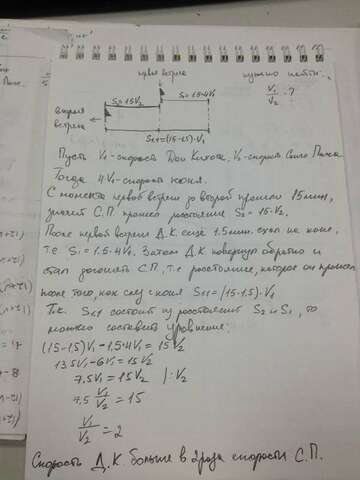 первая встреча
нужно найти:
V₁/V₂ - ?
S₂ = 15V₂
S₁ = 1.5·4V₁
вторая
встреча
Sк1 = (15-1.5)·V₁
Пусть V₁ - скорость Дон Кихота, V₂ - скорость Санчо Панса
Тогда 4V₁ - скорость коня.
С момента первой встречи до второй прошло 15 мин,
значит С.П. прошел расстояние S₂ = 15·V₂.
После первой встречи Д.К. ещё 1.5 мин. ехал на коне,
т.е S₁ = 1.5·4V₁. Затем Д.К повернул обратно и
стал догонять С.П, т.е расстояние, которое он прошел
после того, как слез с коня Sк1 = (15-1.5)·V₁
Т.к. Sк1 состоит из расстояний S₂ и S₁, то
можно составить уравнение:
(15-1.5)V₁ - 1.5·4V₁ = 15V₂
13.5V₁ - 6V₁ = 15V₂
7.5V₁ = 15V₂ |: V₂
7.5 V₁/V₂ = 15
V₁/V₂ = 2
Скорость Д.К. больше в 2 раза скорости С.П.